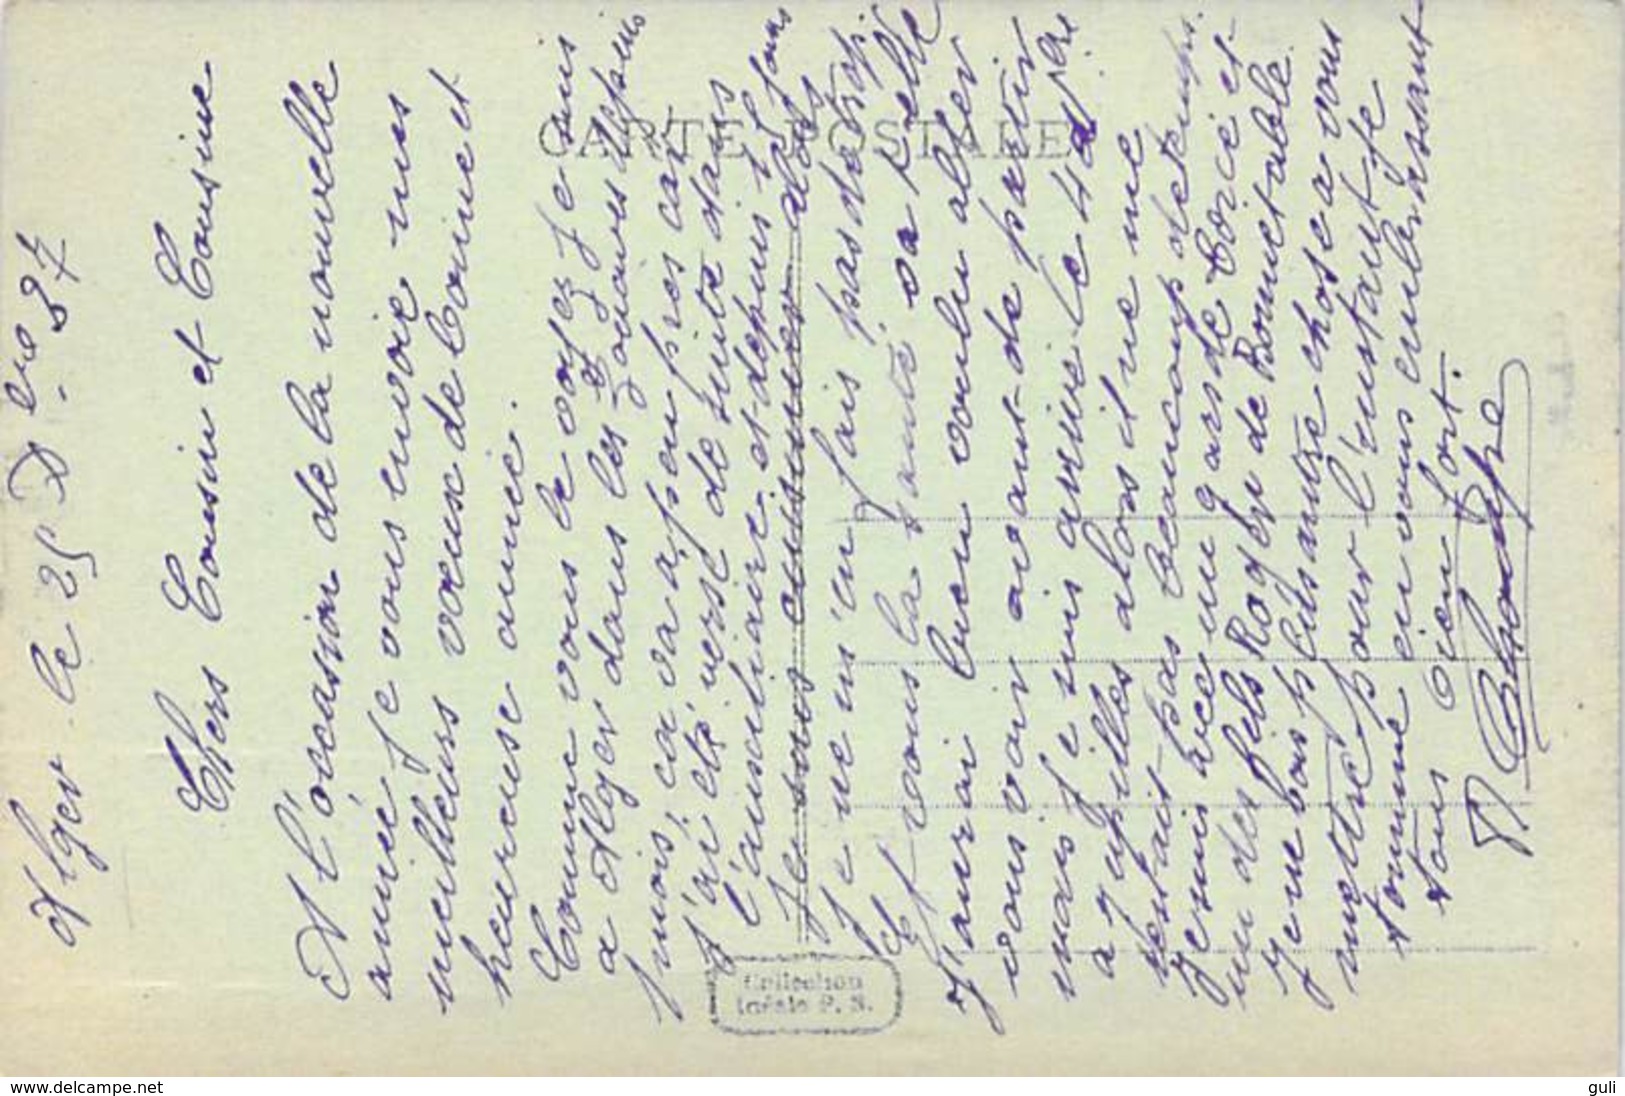 Alger le 25 Dbre 37
Chers Cousin et Cousine
A l'occasion de la nouvelle
année je vous envoie mes
meilleurs voeux de bonne et
heureuse année.
Comme vous le voyez je suis
a Alger dans les Zouaves depuis
mois, ca va a peu pres car
j'ai été versé de suite dans
l'auxiliaire et depuis
Je suis cuisinier alors
je ne m'en fais pas de trop.
Et vous la santé va t'elle
J'aurai bien voulu aller
vous voir avant de partir
mais je suis arrivé le 4
a alors il ne me
restait pas beaucoup de temps.
Je suis avec un gars de Torcé et
un des fils Roger de Bonnetable
Je ne vois plus autre chose a vous
mettre pour l'instant je
termine en vous embrassant
tous bien fort.
CARTE POSTALE
Collection
Idéale P. S.
www.delcampe.net
guli